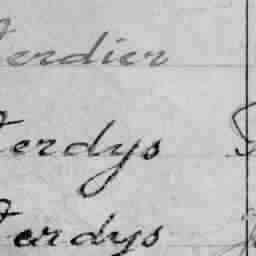 erdier
erdys
erdys